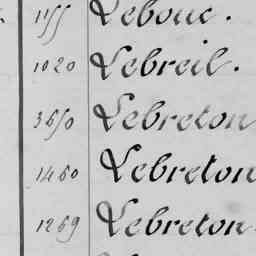 1155 Lebouc.
1020 Lebreil.
3650 Lebreton
1460 Lebreton
1269 Lebreton